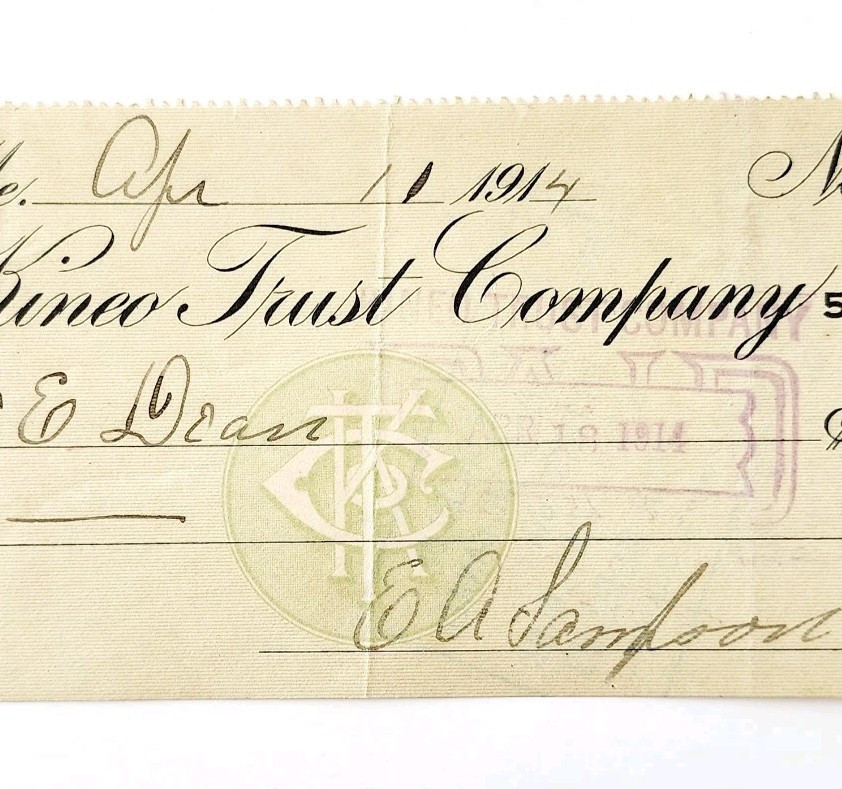 e. Apr 11 1914 No
Kineo Trust Company 5
TRUST COMPANY
E Dean
18 1914
KTC
E A Sampson